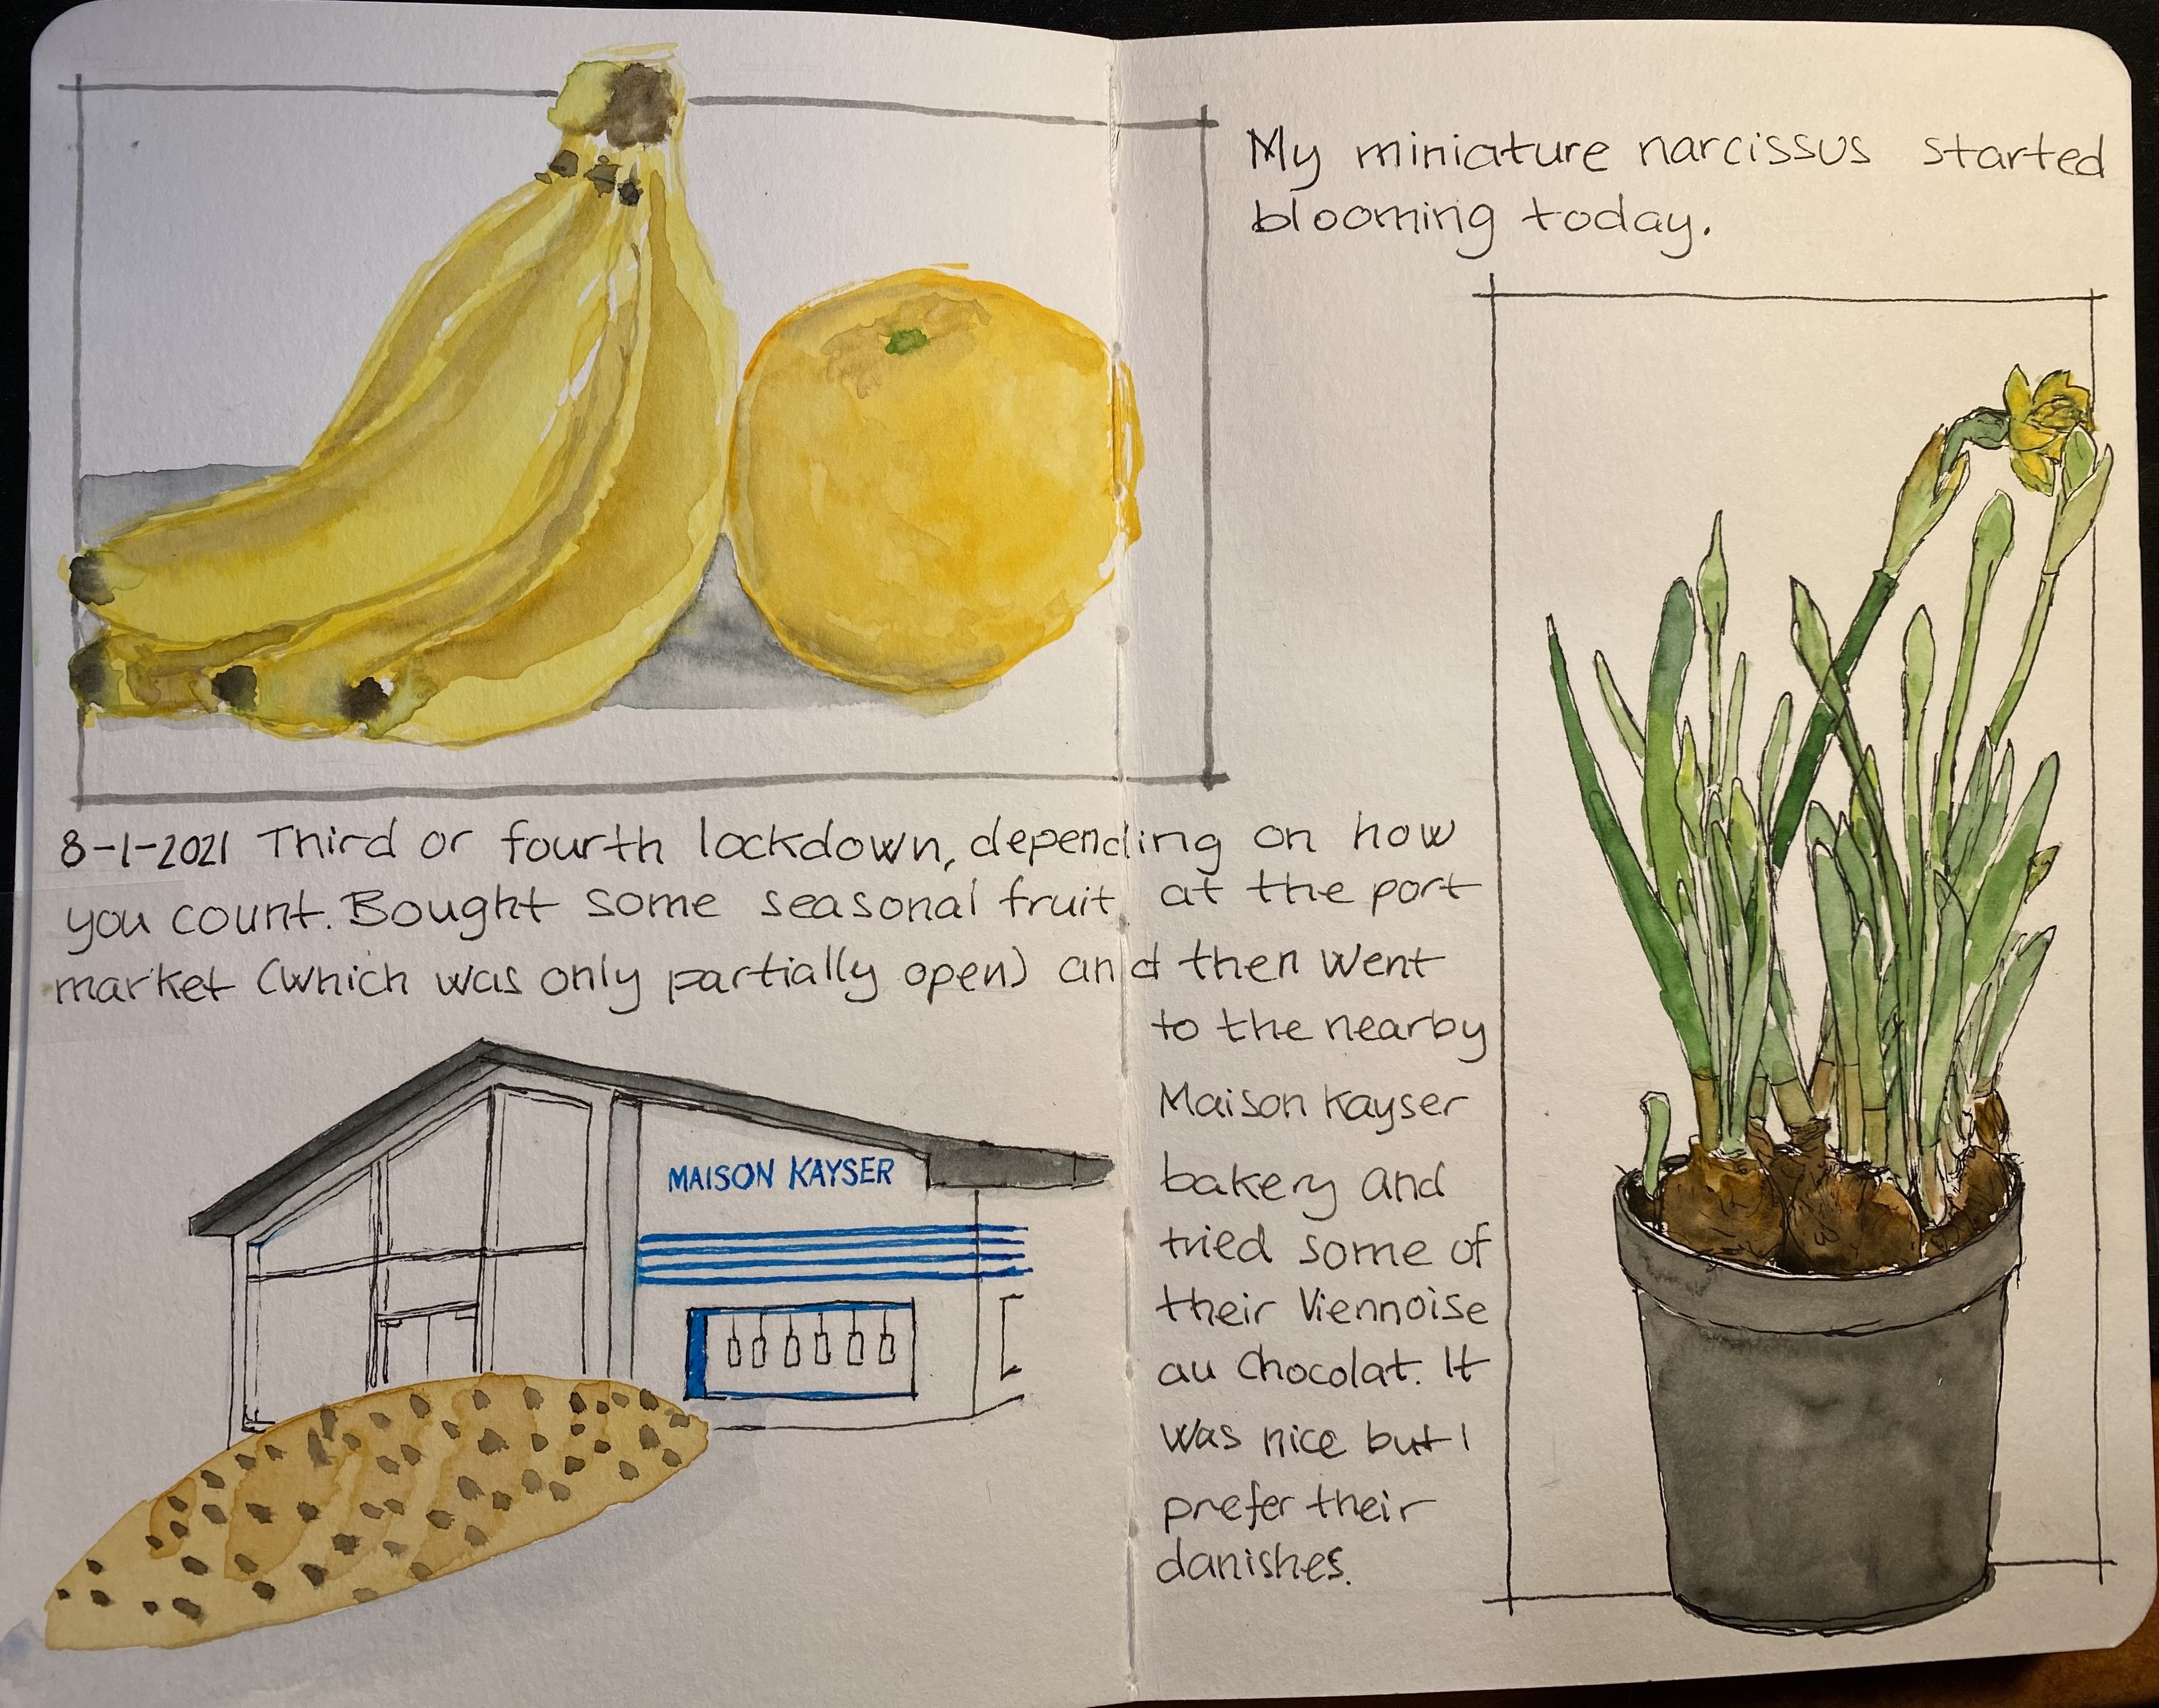 My miniature narcissus started
blooming today.
8-1-2021 Third or fourth lockdown, depending on how
you count. Bought some seasonal fruit at the port
market (which was only partially open) and then went
to the nearby
Maison Kayser
bakery and
tried some of
their Viennoise
au Chocolat. It
was nice but I
prefer their
danishes.
MAISON KAYSER